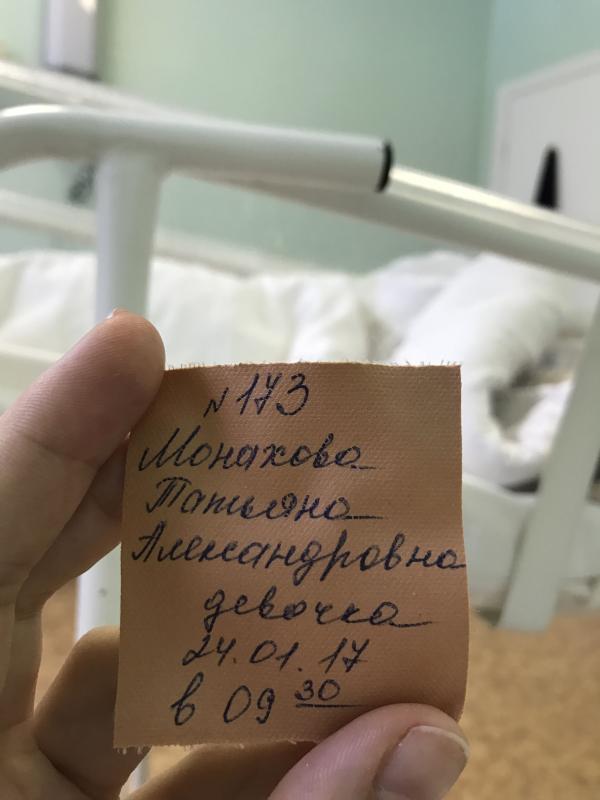 N 173
Монахова
Татьяна
Александровна
девочка
24.01.17
в 09 30